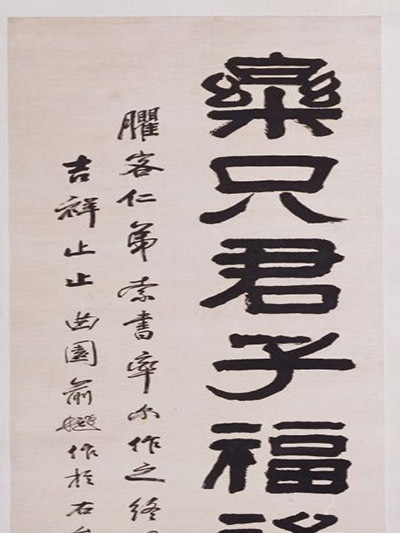 樂只君子福
臞客仁弟索書率尒作之終
吉祥止止曲園俞樾作於右